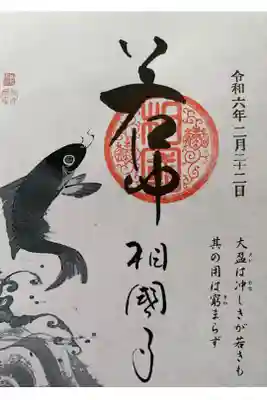 令和六年二月二十二日
若冲
相國寺
大盈は冲しきが若きも
其の用は窮まらず